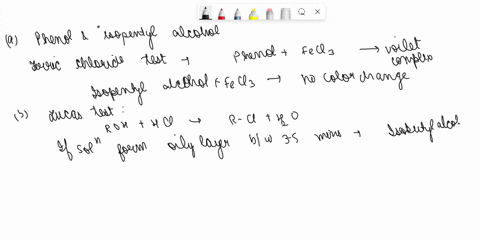 (a) Phenol & isopentyl alcohol
Ferric chloride test → Phenol + FeCl3 → voilet complex
Isopentyl alcohol + FeCl3 → no color change
(b) Lucas test :
ROH + HCl → R-Cl + H2O
If solⁿ form oily layer b/w 3-5 mins → Isobutyl alcol